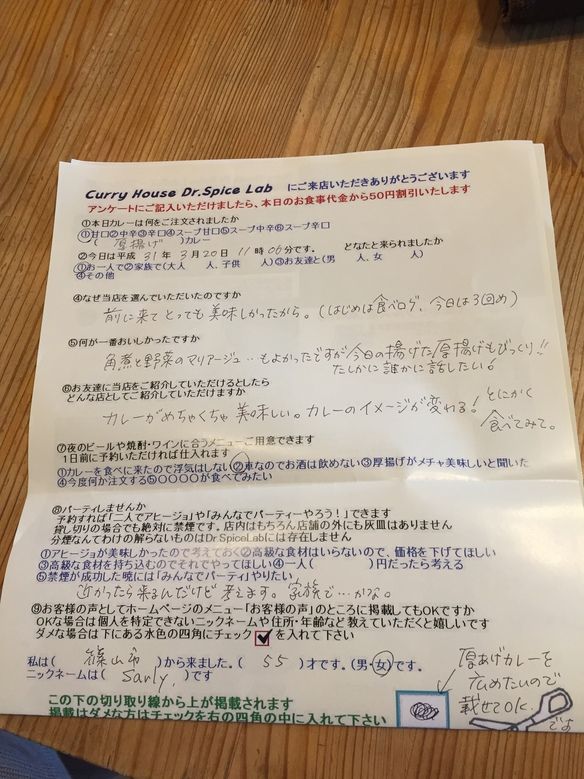 Curry House Dr.Spice Lab にご来店いただきありがとうございます
アンケートにご記入いただけましたら、本日のお食事代金から50円割引いたします
①本日カレーは何をご注文されましたか
①甘口②中辛③辛口④スープ甘口⑤スープ中辛⑥スープ辛口
( 厚揚げ )カレー
②今日は平成 31 年 3 月 20 日 11 時 06 分です。 どなたと来られましたか
①お一人で②家族で(大人 人、子供 人)③お友達と(男 人、女 人)
④その他
④なぜ当店を選んでいただいたのですか
前に来てとっても美味しかったから。(はじめは食べログ、今日は3回め)
⑤何が一番おいしかったですか
角煮と野菜のマリアージュ‥もよかったですが今日の揚げた厚揚げもびっくり!!
たしかに誰かに話したい!
⑥お友達に当店をご紹介していただけるとしたら
どんな店としてご紹介していただけますか
カレーがめちゃくちゃ美味しい。カレーのイメージが変わる! とにかく
食べてみて。
⑦夜のビールや焼酎・ワインに合うメニューご用意できます
1日前に予約いただければ仕入れます
①カレーを食べに来たので浮気はしない②車なのでお酒は飲めない③厚揚げがメチャ美味しいと聞いた
④今度何か注文する⑤〇〇〇〇が食べてみたい
⑧パーティしませんか
予約すれば「二人でアヒージョ」や「みんなでパーティーやろう!」できます
貸し切りの場合でも絶対に禁煙です。店内はもちろん店舗の外にも灰皿はありません
分煙なんてわけの解らないものはDr.SpiceLabには存在しません
①アヒージョが美味しかったので考えておく②高級な食材はいらないので、価格を下げてほしい
③高級な食材を持ち込むのでそれでやってほしい④一人( )円だったら考える
⑤禁煙が成功した暁には「みんなでパーティ」やりたい
近かったら来るんだけど 考えます。家族で‥かな。
⑨お客様の声としてホームページのメニュー「お客様の声」のところに掲載してもOKですか
OKな場合は個人を特定できないニックネームや住所・年齢など教えていただくと嬉しいです
ダメな場合は下にある水色の四角にチェック ✓ を入れて下さい
私は( 篠山市 )から来ました。( 55 )才です。(男・女)です。
ニックネームは( Sarly )です
厚あげカレーを
広めたいので
載せてOK.
です
この下の切り取り線から上が掲載されます
掲載はダメな方はチェックを右の四角の中に入れて下さい